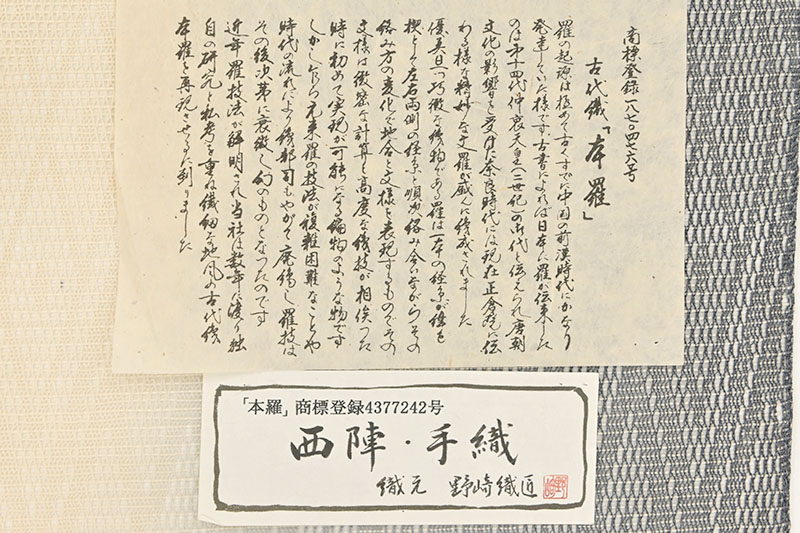 商標登録一八七〇四七六号
古代織「本羅」
羅の起源は極めて古くすでに中国の前漢時代にかなり
発達していた様です、古書によれば日本に羅が伝来した
のは第十四代仲哀天皇(二世紀)の御代と伝えられ唐朝
文化の影響を受けた奈良時代には現在正倉院に伝
わる様な精妙な文羅が盛んに織成されました
優美且つ巧緻な織物である羅は一本の経糸が緯を
楔として左右両側の経糸と順次絡み合いながらその
絡み方の変化で地合と文様を表現するものでその
文様は緻密な計算と高度な織技が相俟った
時に初めて実現が可能になる編物のような物です
しかしながら元来羅の技法が複雑困難なことや
時代の流れにより織部司もやがて廃絶し羅技は
その後次第に衰微し幻のものとなったのです
近年羅技法が解明され当社は数年に渡り独
自の研究と私考を重ね繊細な地風の古代織
本羅を再現させるに到りました
「本羅」商標登録4377242号
西陣・手織
織元 野崎織匠